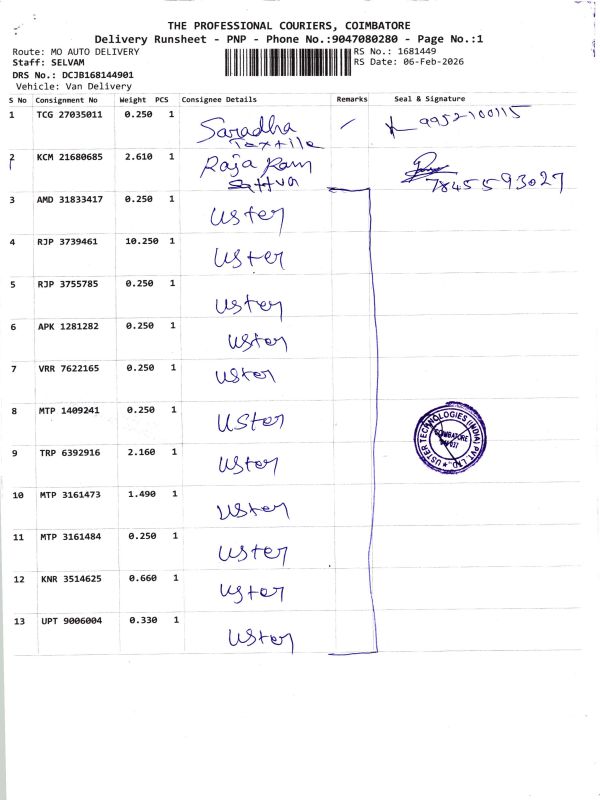 THE PROFESSIONAL COURIERS, COIMBATORE
Delivery Runsheet - PNP - Phone No.:9047080280 - Page No.:1
Route: MO AUTO DELIVERY
RS No.: 1681449
Staff: SELVAM
RS Date: 06-Feb-2026
DRS No.: DCJB168144901
Vehicle: Van Delivery
S No Consignment No Weight PCS Consignee Details Remarks Seal & Signature
1 TCG 27035011 0.250 1 Saradha Textile 9952100115
2 KCM 21680685 2.610 1 Raja Ram 7845593027
3 AMD 31833417 0.250 1 Uster
4 RJP 3739461 10.250 1 Uster
5 RJP 3755785 0.250 1 Uster
6 APK 1281282 0.250 1 Uster
7 VRR 7622165 0.250 1 Uster
8 MTP 1409241 0.250 1 Uster
9 TRP 6392916 2.160 1 Uster
10 MTP 3161473 1.490 1 Uster
11 MTP 3161484 0.250 1 Uster
12 KNR 3514625 0.660 1 Uster
13 UPT 9006004 0.330 1 Uster
USTER TECHNOLOGIES (INDIA) PVT. LTD.
COIMBATORE